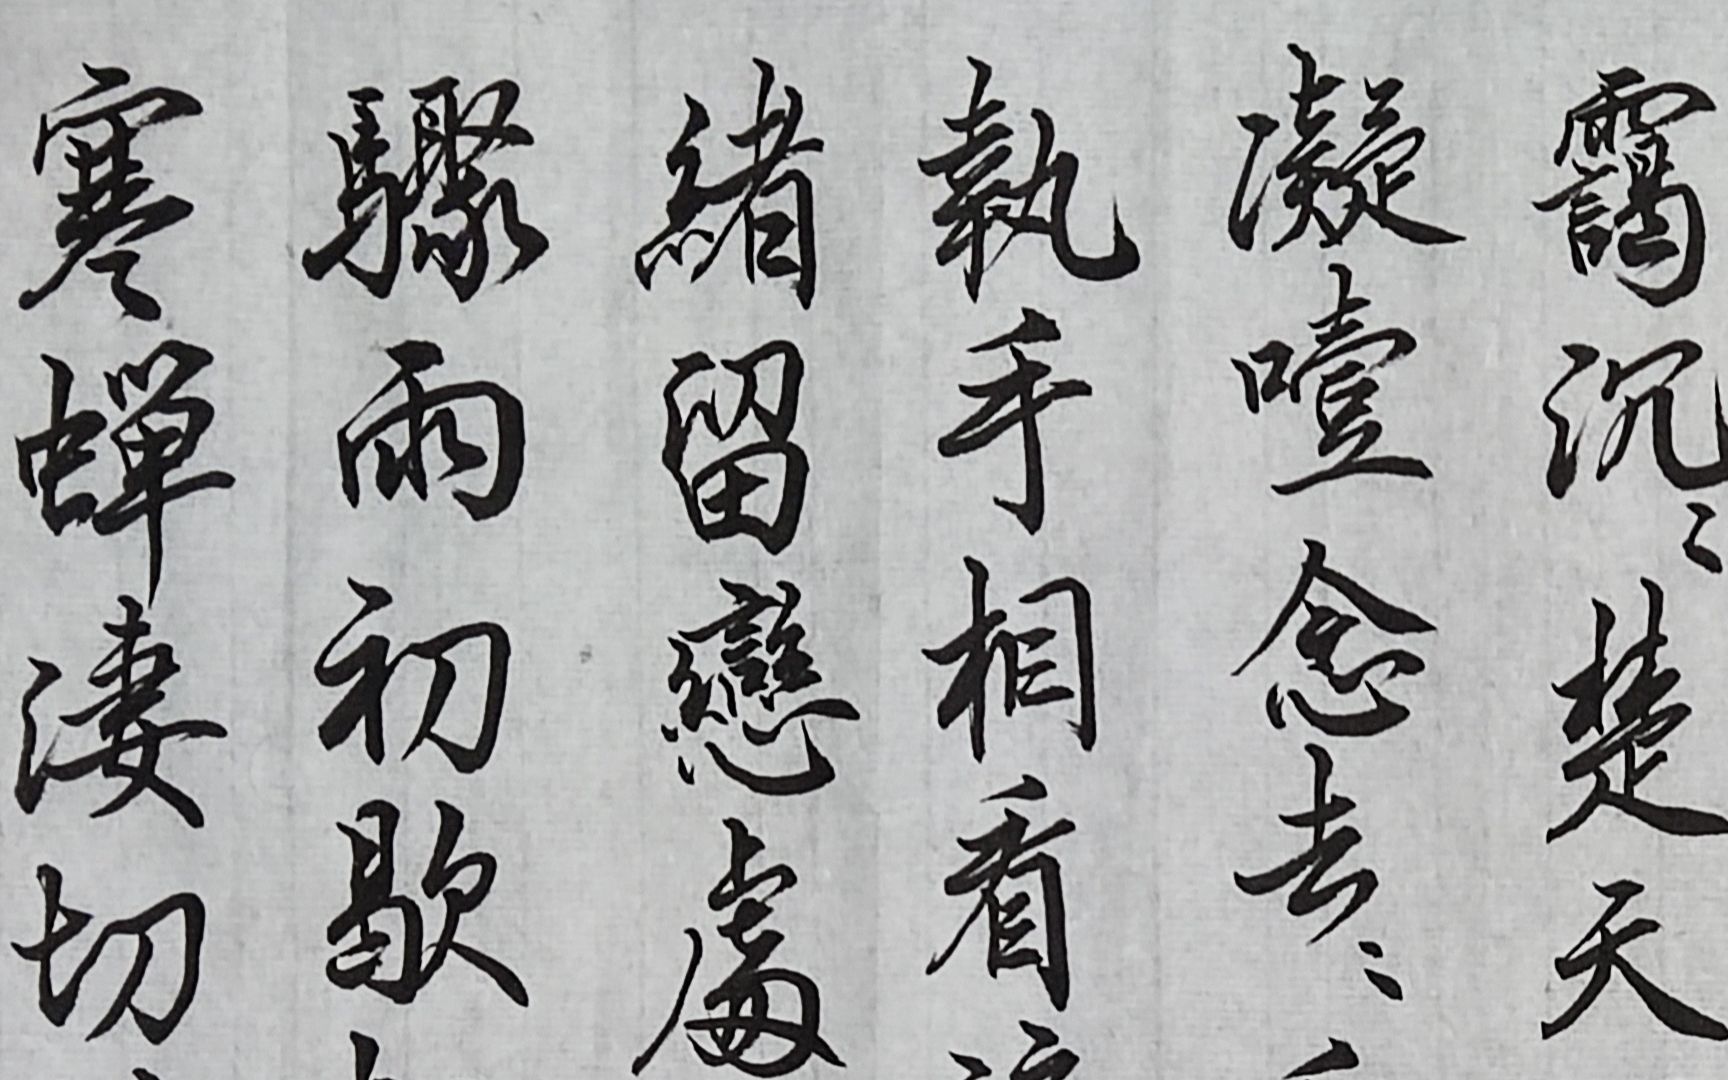 寒蟬淒切
驟雨初歇
緒留戀處
執手相看
凝噎念去〻
靄沉〻楚天